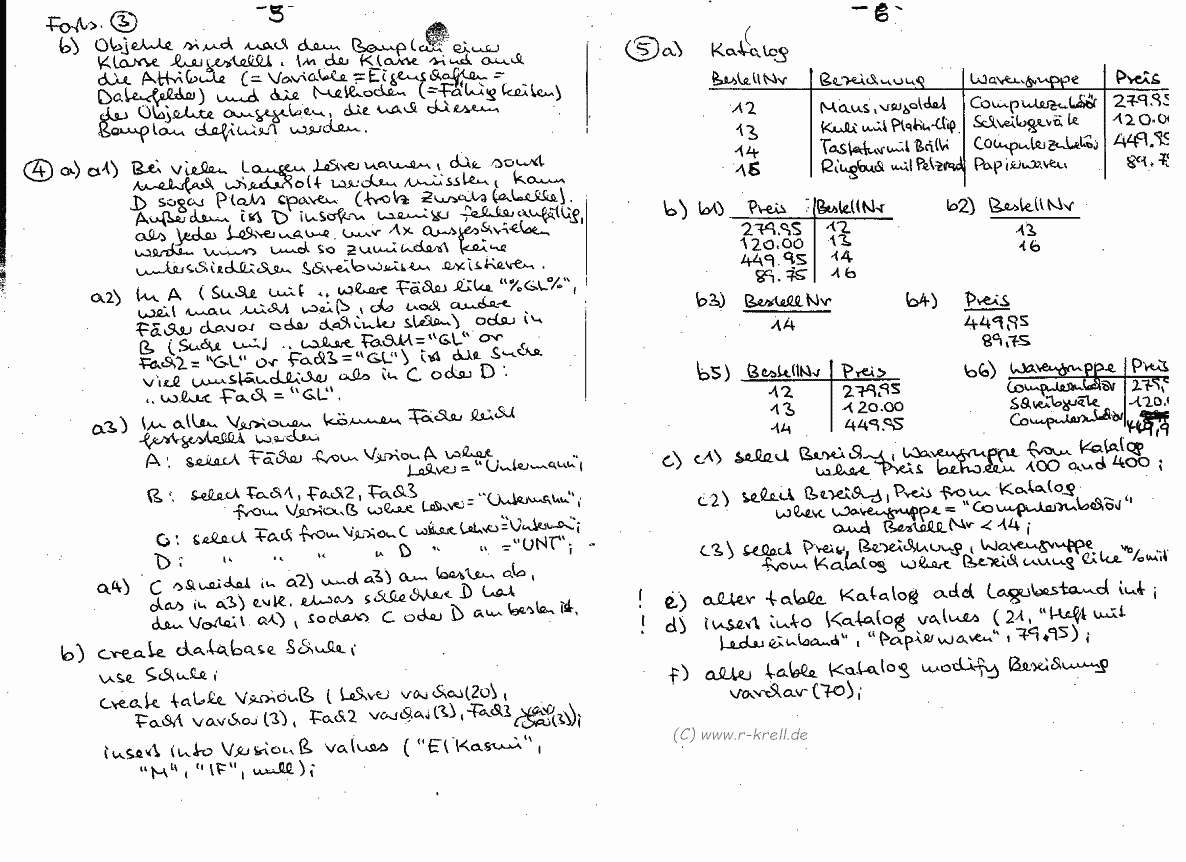 -5-
Forts. ③
b) Objekte sind nach dem Bauplan einer
Klasse hergestellt. In der Klasse sind auch
die Attribute (= Variable = Eigenschaften =
Datenfelder) und die Methoden (= Fähigkeiten)
der Objekte angegeben, die nach diesem
Bauplan definiert werden.
④ a) a1) Bei vielen langen Lehrernamen, die sonst
mehrfach wiederholt werden müssten, kann
D sogar Platz sparen (trotz Zusatztabelle).
Außerdem ist D insofern weniger fehleranfällig,
als jeder Lehrername nur 1x ausgeschrieben
werden muss und so zumindest keine
unterschiedlichen Schreibweisen existieren.
a2) In A (Suche mit .. where Fächer like "%GL%",
weil man nicht weiß, ob noch andere
Fächer davor oder dahinter stehen) oder in
B (Suche mit .. where Fach1="GL" or
Fach2="GL" or Fach3="GL") ist die Suche
viel umständlicher als in C oder D:
.. where Fach = "GL".
a3) In allen Versionen können Fächer leicht
festgestellt werden
A: select Fächer from VersionA where
Lehrer="Untermann";
B: select Fach1, Fach2, Fach3
from VersionB where Lehrer="Untermann";
C: select Fach from VersionC where Lehrer="Unterman";
D: " " " " D " " ="UNT";
a4) C schneidet in a2) und a3) am besten ab,
das in a3) evtl. etwas schlechtere D hat
den Vorteil a1), sodass C oder D am besten ist.
b) create database Schule;
use Schule;
create table VersionB (Lehrer varchar(20),
Fach1 varchar(3), Fach2 varchar(3), Fach3 varchar(3));
insert into VersionB values ("El Kasmi",
"M", "IF", null);
-6-
⑤ a) Katalog
BestellNr Bezeichnung Warengruppe Preis
12 Maus, vergoldet Computerzubehör 279.95
13 Kuli mit Platin-Clip Schreibgeräte 120.00
14 Tastatur mit Brilli Computerzubehör 449.95
16 Ringbuch mit Pelzrand Papierwaren 89.75
b) b1) Preis BestellNr b2) BestellNr
279.95 12 13
120.00 13 16
449.95 14
89.75 16
b3) BestellNr b4) Preis
14 449,95
89,75
b5) BestellNr Preis b6) Warengruppe Preis
12 279.95 Computerzubehör 279,
13 120.00 Schreibgeräte 120.
14 449.95 Computerzubehör 449,9
c) c1) select Bezeichng, Warengruppe from Katalog
where Preis between 100 and 400;
c2) select Bezeichg, Preis from Katalog
where Warengruppe = "Computerzubehör"
and BestellNr < 14;
c3) select Preis, Bezeichnung, Warengruppe
from Katalog where Bezeichnung like "%mit
! e) alter table Katalog add Lagerbestand int;
! d) insert into Katalog values (21, "Heft mit
Ledereinband", "Papierwaren", 79.95);
f) alter table Katalog modify Bezeichnung
varchar(70);
(C) www.r-krell.de